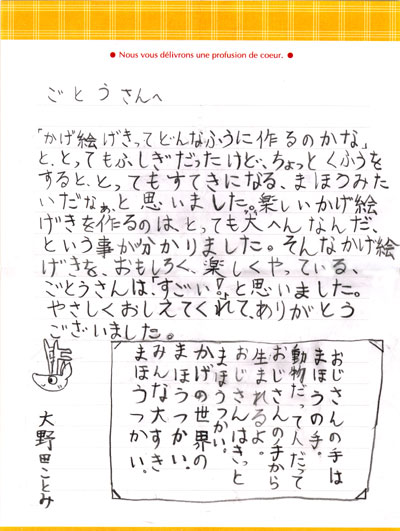 Nous vous délivrons une profusion de coeur.
ごとうさんへ
「かげ絵げきってどんなふうに作るのかな」
と、とってもふしぎだったけど、ちょっとくふうを
すると、とってもすてきになる、まほうみた
いだなぁ、と思いました。楽しいかげ絵
げきを作るのは、とっても大へんなんだ、
という事が分かりました。そんなかげ絵
げきを、おもしろく、楽しくやっている、
ごとうさんは、「すごい!」と思いました。
やさしくおしえてくれて、ありがとう
ございました。
おじさんの手は
まほうの手。
動物だって人だって
おじさんの手から
生まれるよ。
おじさんはきっと
まほうつかい。
かげの世界の
まほうつかい。
みんな大すき
まほうつかい。
大野田ことみ